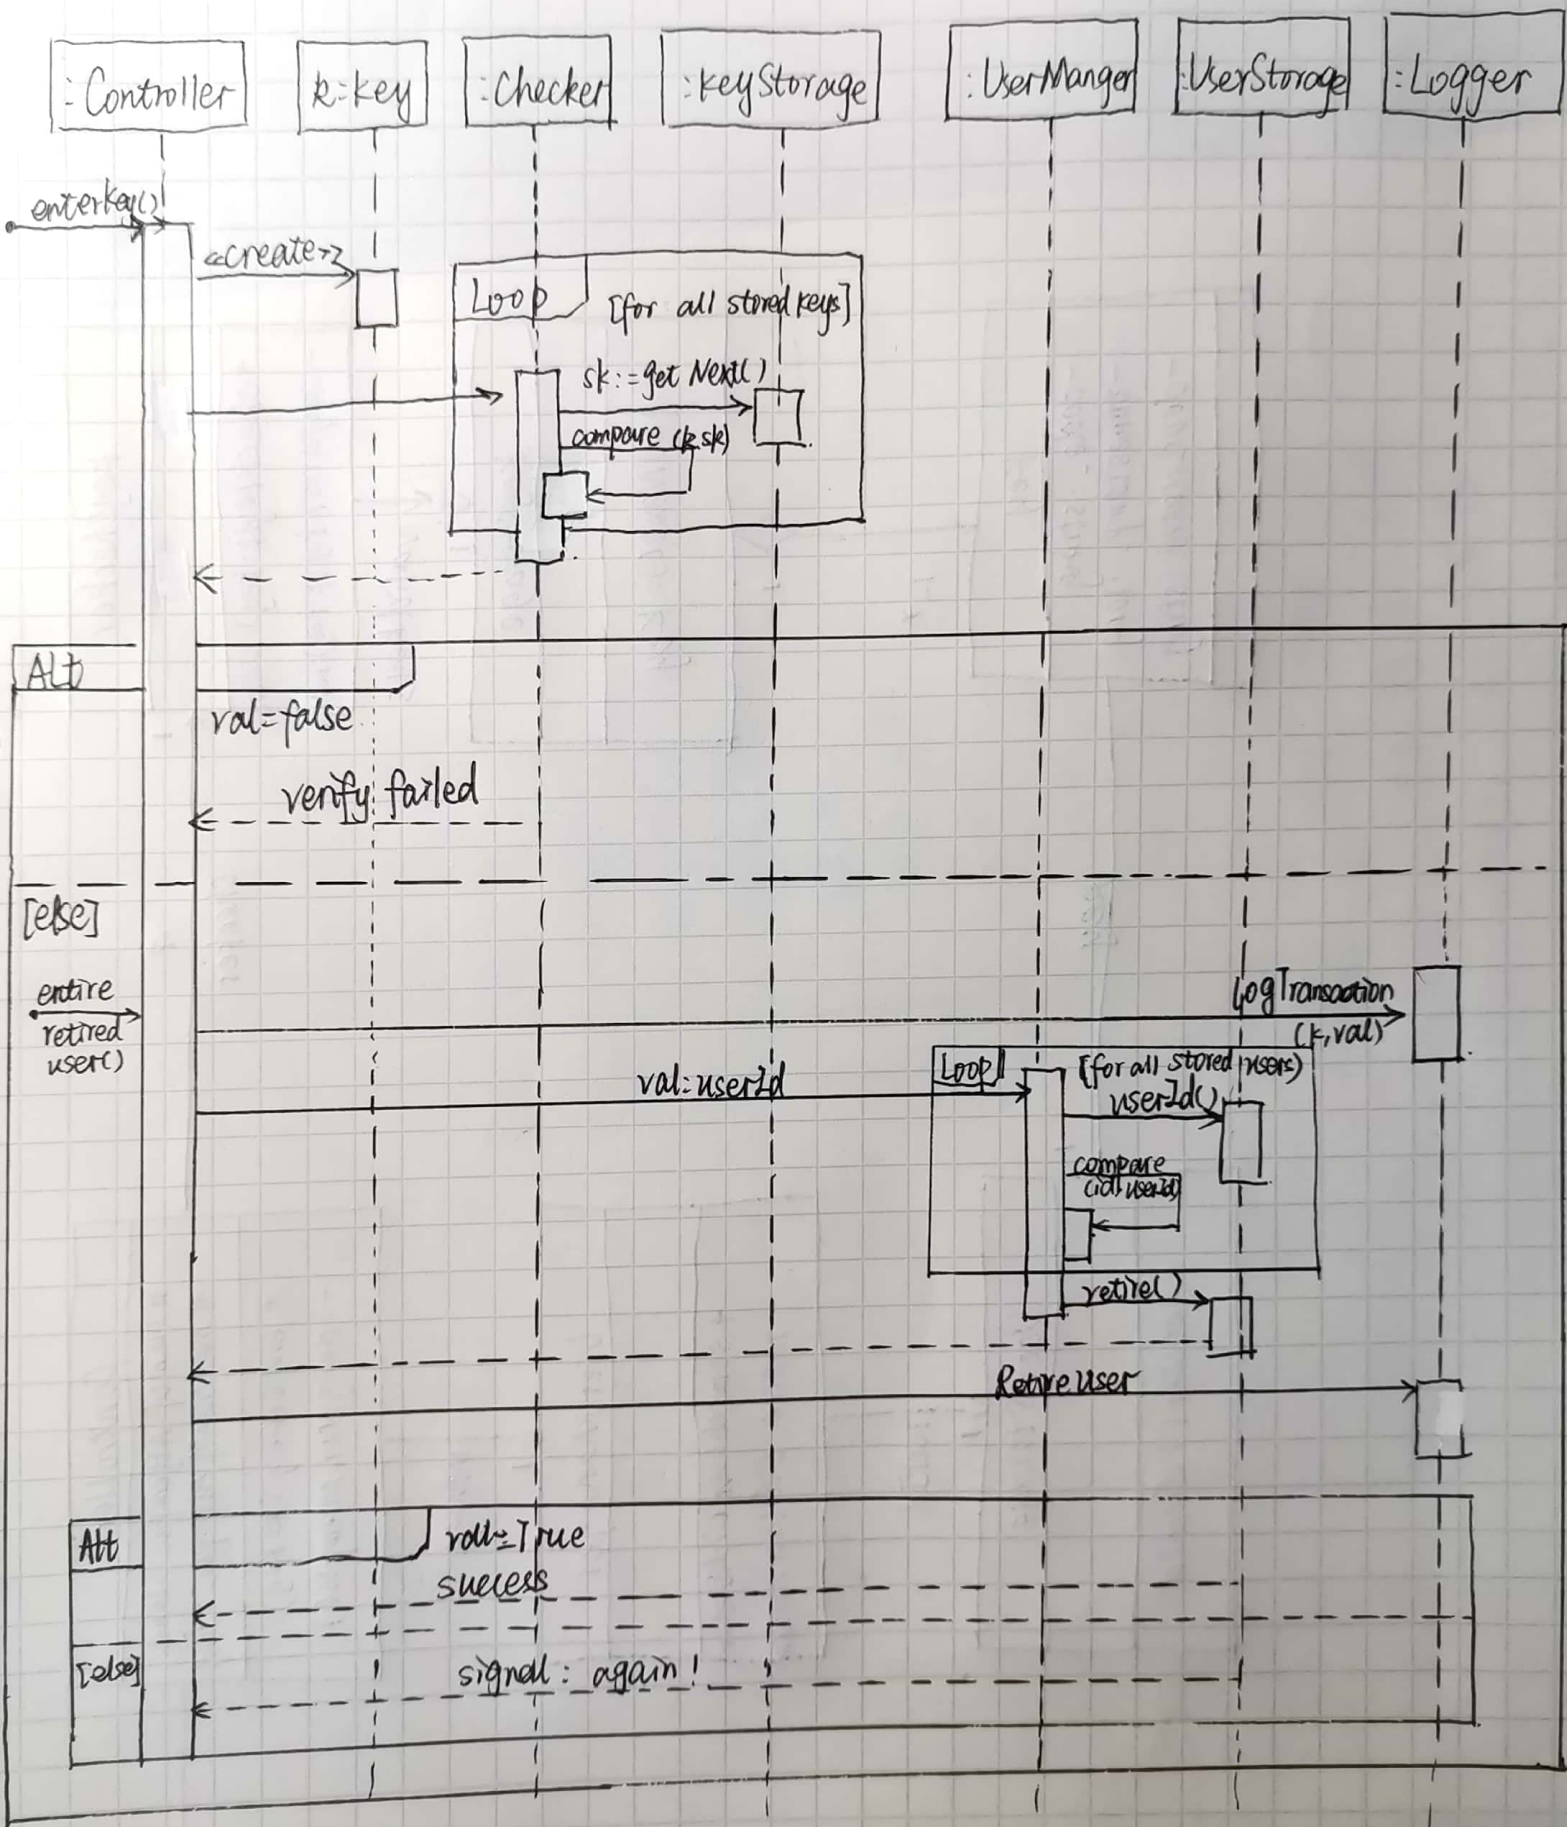 :Controller
k:key
:Checker
:keyStorage
:UserManger
:UserStorage
:Logger
enterkey()
<<create>>
Loop
[for all stored keys]
sk:=get Next()
compare (k,sk)
Alt
val=false
verify failed
[else]
entire
retired
user()
LogTransaction
(k,val)
Loop
[for all stored users)
val=userId
userId()
compare
(id, userId)
retire()
Retire user
Alt
val=True
success
[else]
signal: again!